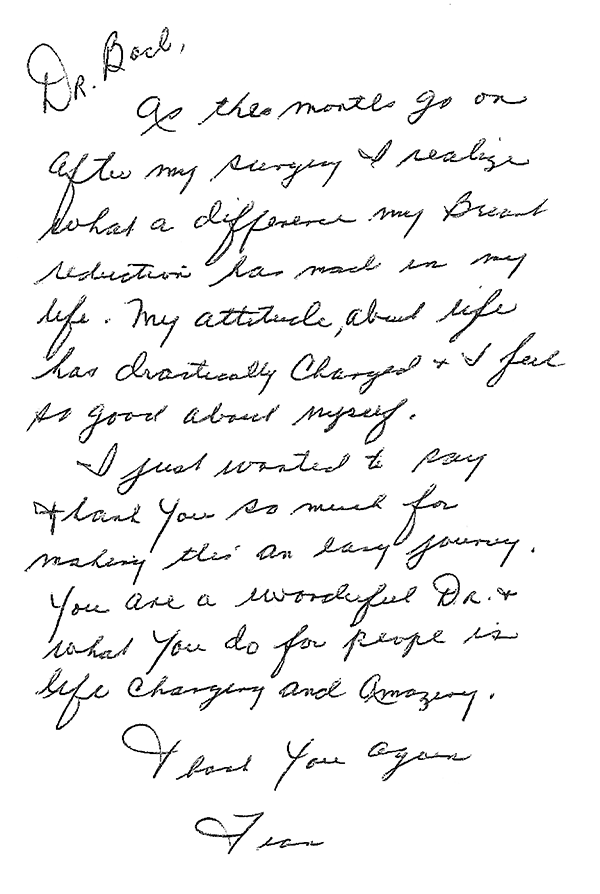 Dr. Bock,
As the months go on
after my surgery I realize
what a difference my Breast
reduction has mad in my
life. My attitude, about life
has drastically Changed + I feel
so good about myself.
I just wanted to say
thank you so much for
making this an easy journey.
You are a wonderful Dr. +
what you do for people is
life changing and Amazing.
Thank you again